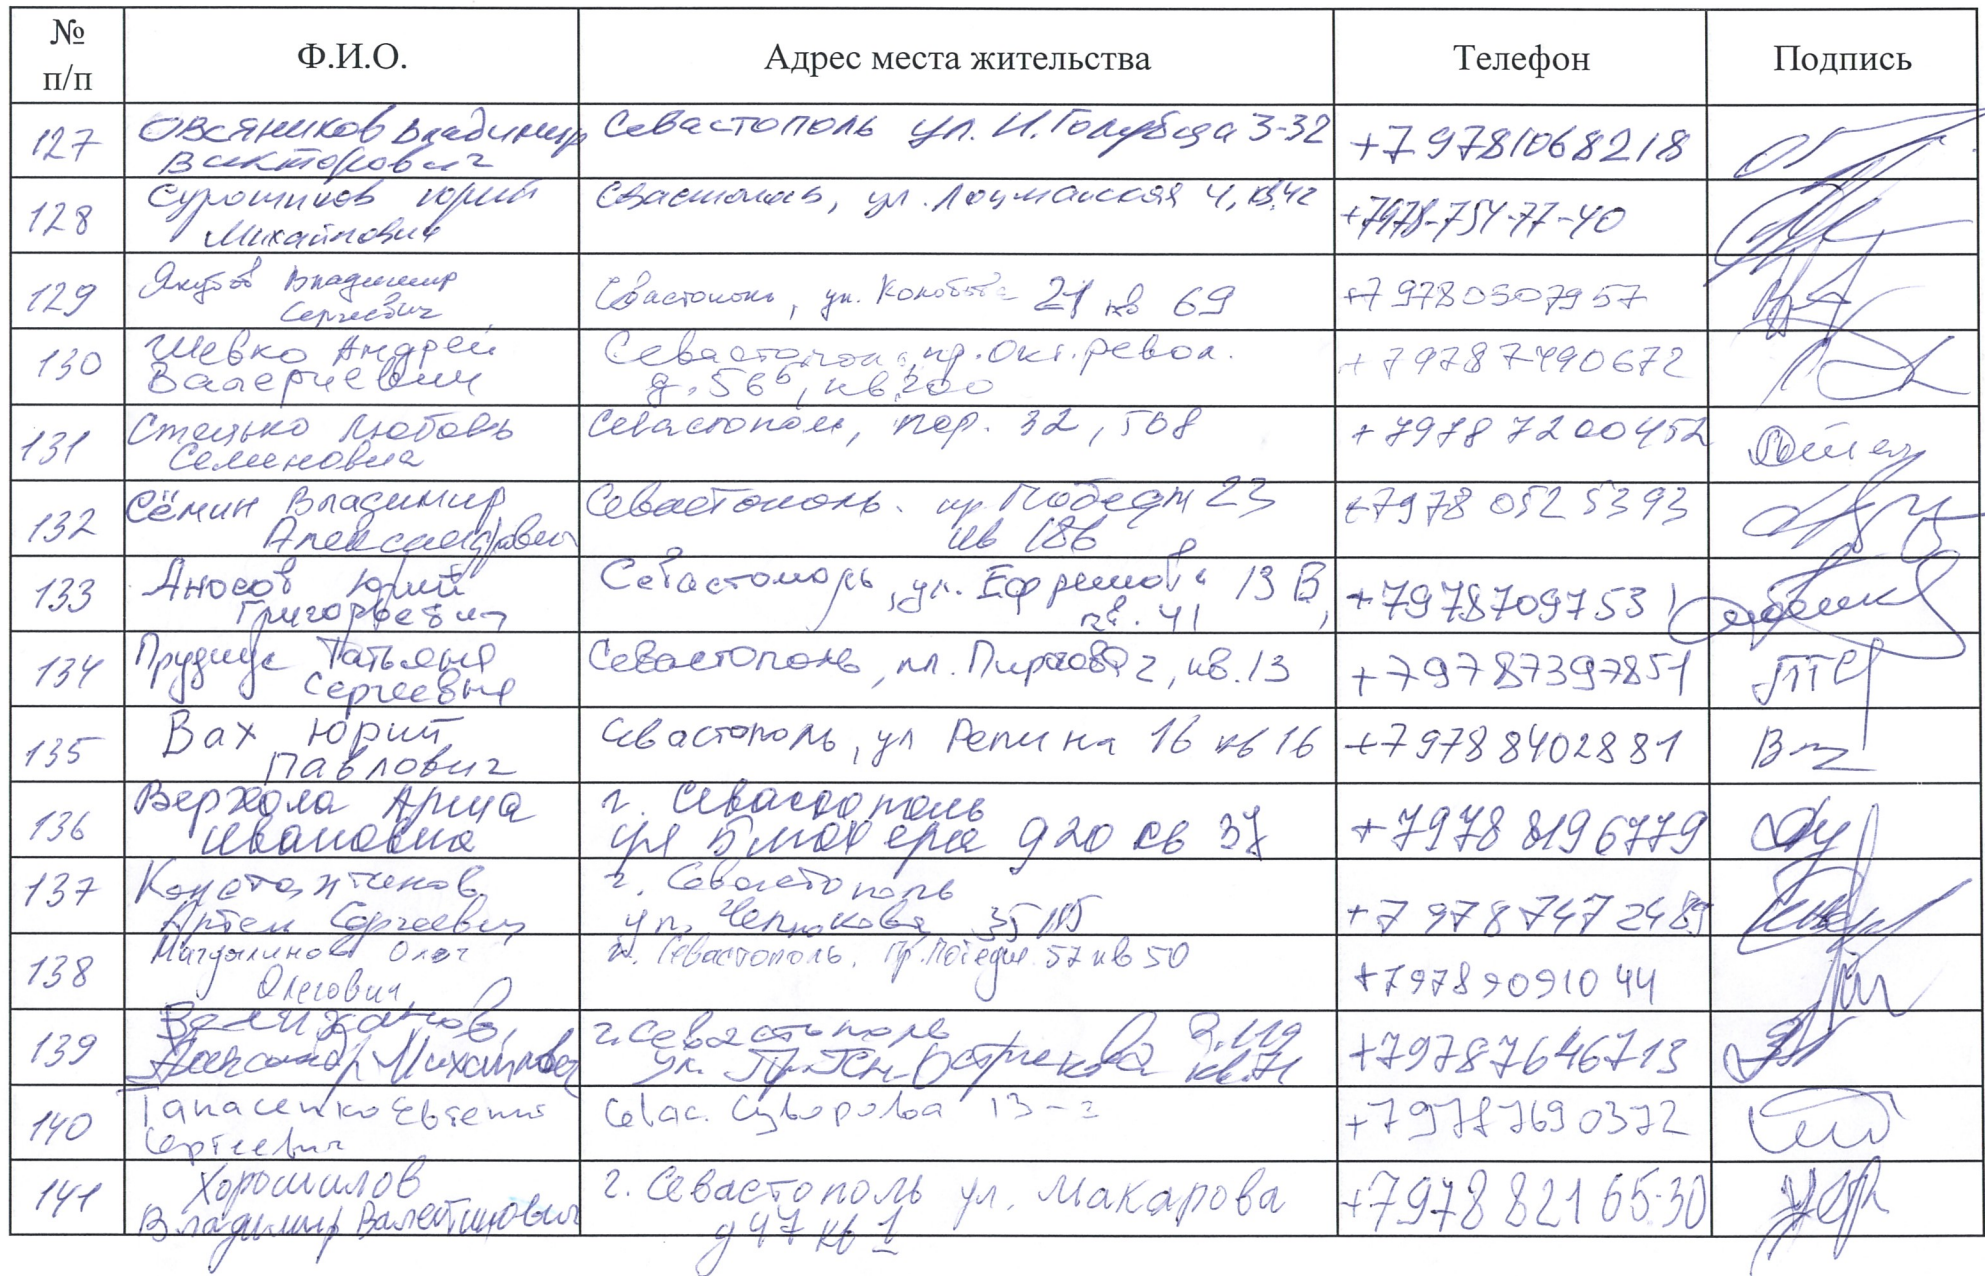 № п/п Ф.И.О. Адрес места жительства Телефон Подпись
127 Овсяников Владимир Викторович Севастополь ул. И. Голубца 3-32 +79781068218
128 Юрий Михайлович Севастополь, ул. Лоцманская 4, кв. +7978-754-77-40
129 Владимир Сергеевич Севастополь, ул. 21 кв 69 +79780507957
130 Шевко Андрей Валериевич Севастополь, пр. Окт. револ. д. 56б, кв. 200 +79787490672
131 Любовь Семеновна Севастополь, 32, 508 +79787200452
132 Сёмин Владимир Александрович Севастополь. пр Победы 23 кв 186 +79780525393
133 Аносов Юрий Григорьевич Севастополь, ул. Ефремова 13 В, кв. 41 +79787097531
134 Татьяна Сергеевна Севастополь, пл. Пирогова 2, кв. 13 +79787397851
135 Вах Юрий Павлович Севастополь, ул Репина 16 кв 16 +79788402881
136 Ивановна г. Севастополь ул Блюхера д 20 кв 37 +79788196779
137 Константинов Артем Сергеевич г. Севастополь ул. +797874724
138 Олег Олегович г. Севастополь. пр. Победы 57 кв 50 +79789091044
139 Александр Михайлович г. Севастополь Острякова д. 119 кв. 71 +79787646713
140 Евгений Сергеевич Севас. Суворова 13-2 +79787690372
141 Хорошилов Владимир Валентинович г. Севастополь ул. Макарова д 47 кв 1 +7978 821 65-30